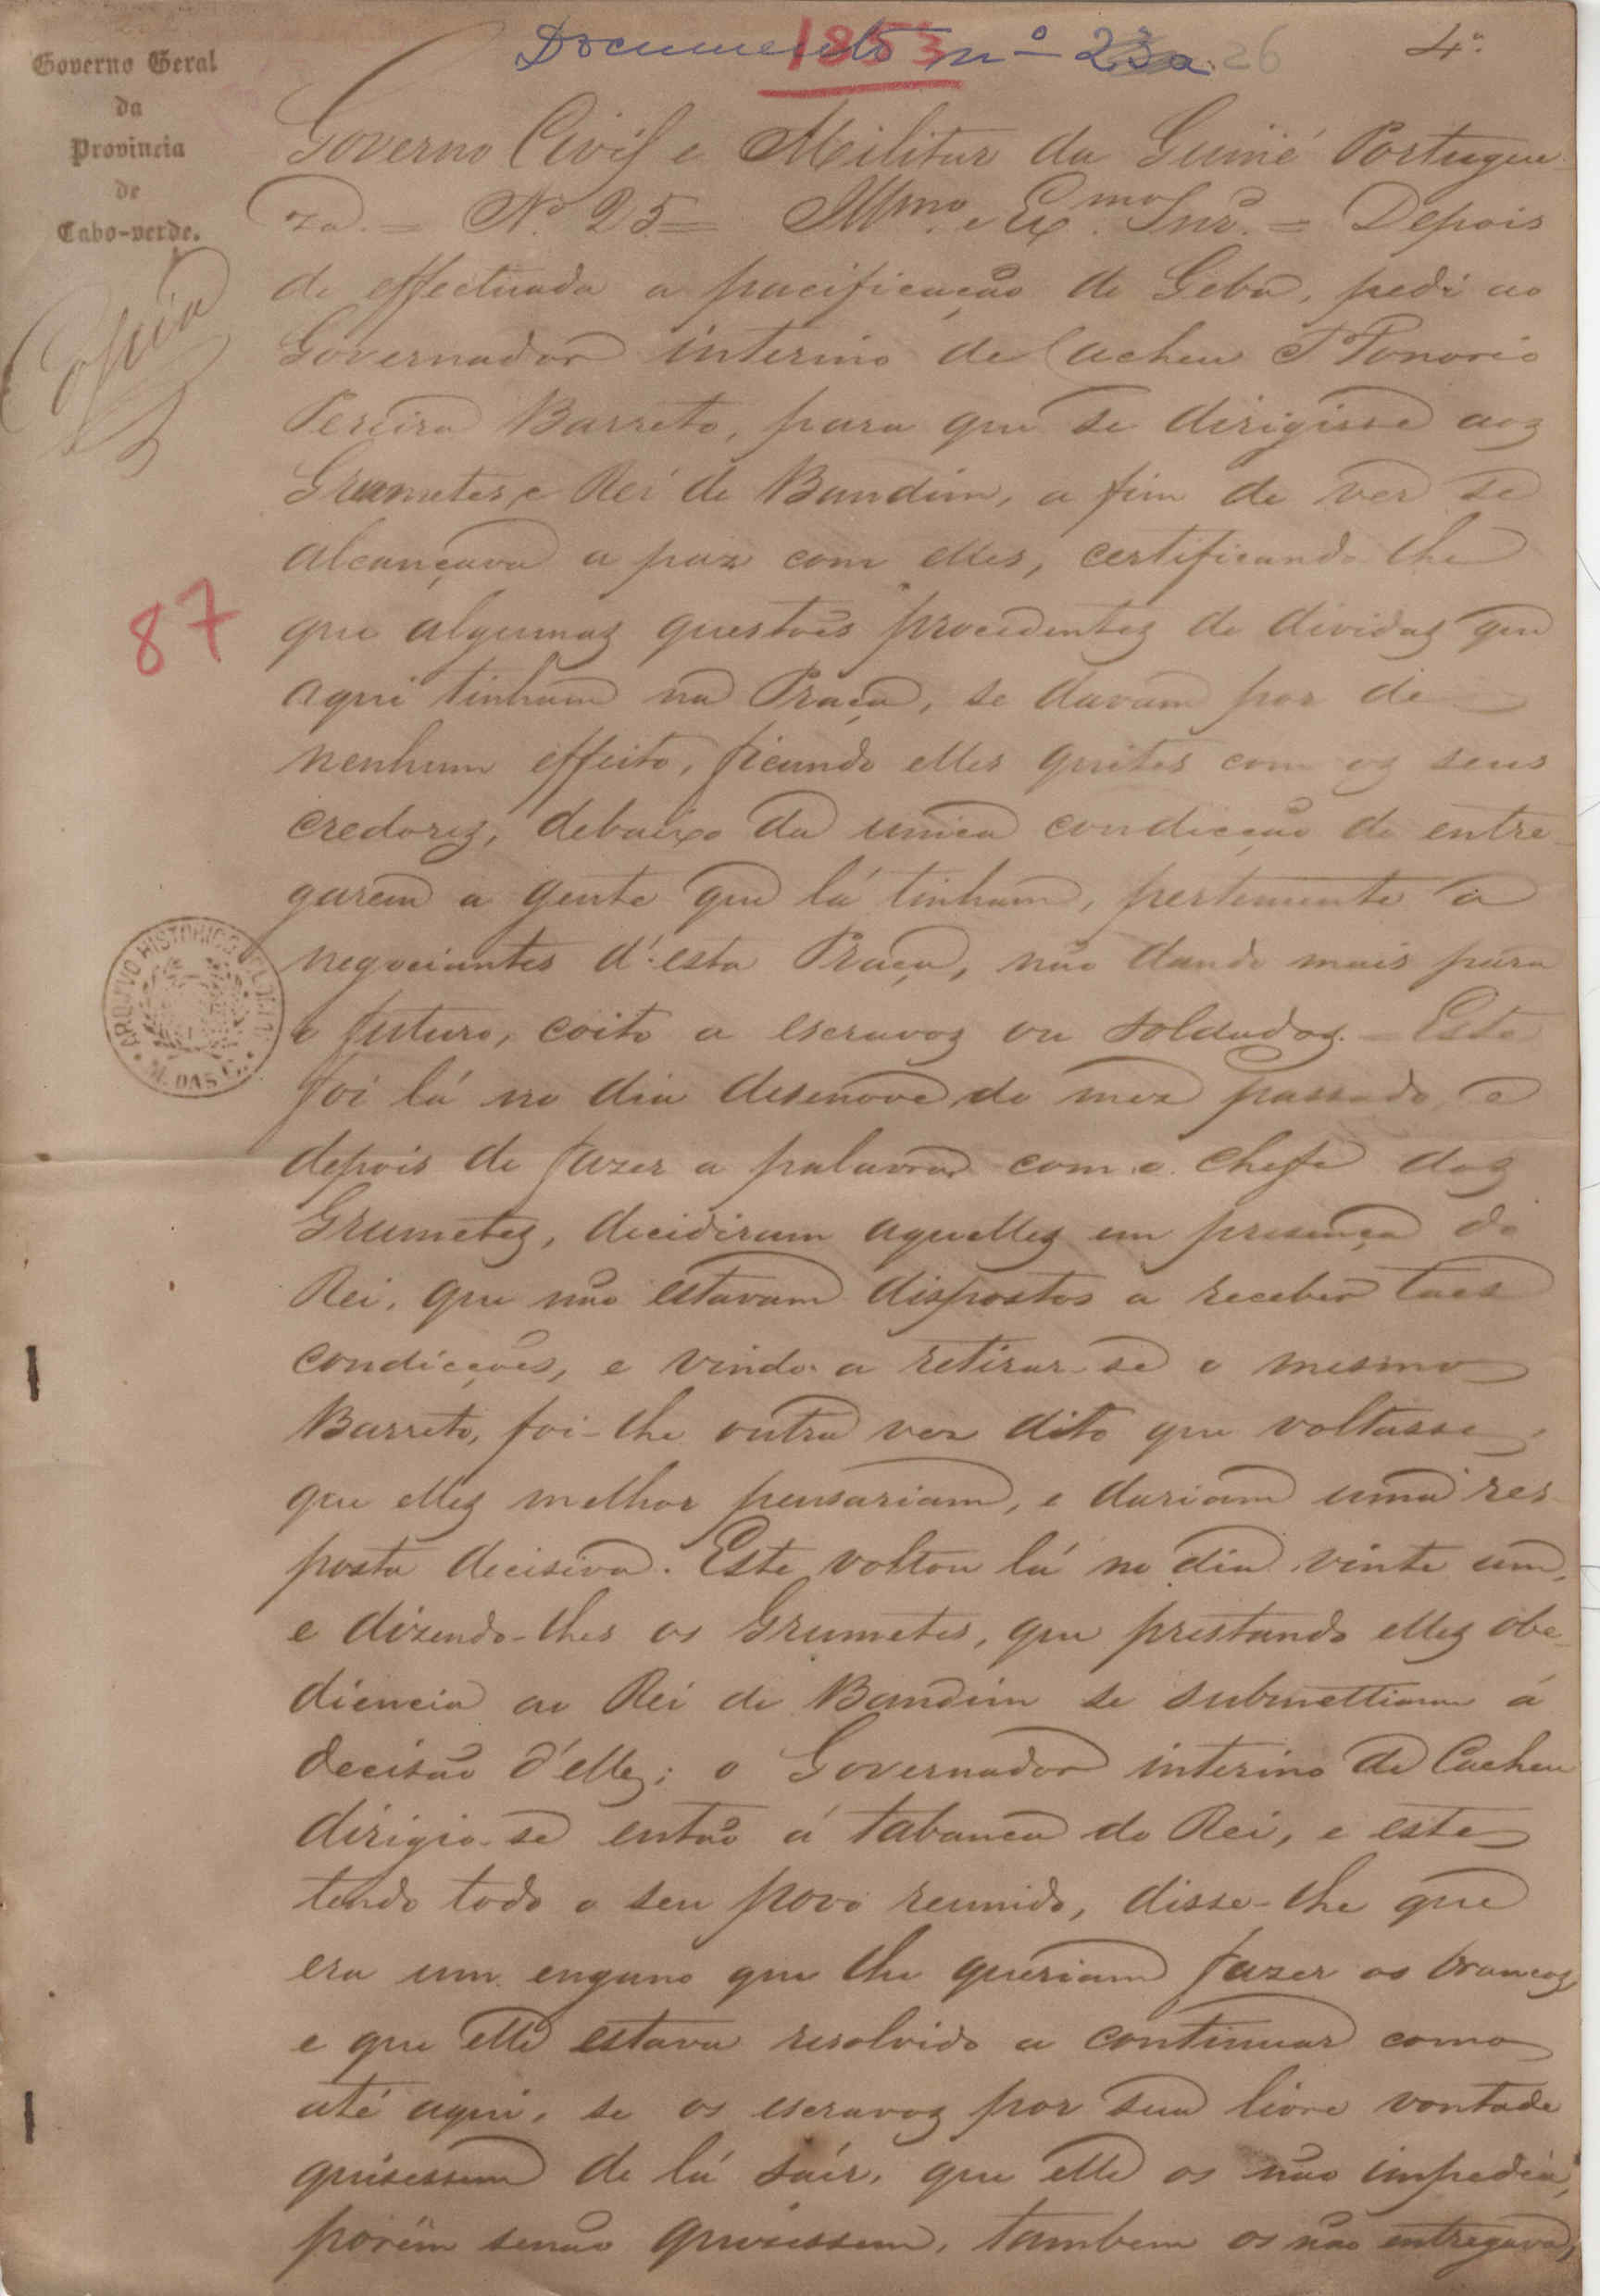 Documento nº 23a 26
1853
4º
Governo Geral
da
Provincia
de
Cabo-verde.
Copia
87
ARQUIVO HISTORICO COLONIAL
M. DAS C.
Governo Civil e Militar da Guiné Portugue-
za. = Nº 25 = Illmo. e Exmo. Snr. = Depois
de effectuada a pacificação de Geba, pedi ao
Governador interino de Cacheu Honorio
Pereira Barreto, para que se dirigisse aos
Grumetes, e Rei de Bandim, a fim de ver se
alcançava a paz com elles, certificando-lhe
que algumas questões procedentes de dividas que
aqui tinham na Praça, se davam por de
nenhum effeito, ficando elles quites com os seus
credores, debaixo da unica condicção de entre-
garem a gente que lá tinham, pertencente a
negociantes d'esta Praça, não dando mais para
o futuro, coito a escravos ou soldados. = Este
foi lá no dia desenove do mez passado, e
depois de fazer a palavra com o chefe dos
Grumetes, decidiram aquelles em presença do
Rei, que não estavam dispostos a receber taes
condicções, e vindo a retirar-se o mesmo
Barreto, foi-lhe outra vez dito que voltasse,
que elles melhor pensariam, e dariam uma res-
posta decisiva. Este voltou lá no dia vinte um,
e dizendo-lhes os Grumetes, que prestando elles obe-
diencia ao Rei de Bandim se submettiam á
decisão d'elle; o Governador interino de Cacheu
dirigio-se então á tabanca do Rei, e este
tendo todo o seu povo reunido, disse-lhe que
era um engano que lhe queriam fazer os brancos
e que elle estava resolvido a continuar como
até aqui, se os escravos por sua livre vontade
quisessem de lá sair, que elle os não impedia,
porém senão quisessem, tambem os não entregava,